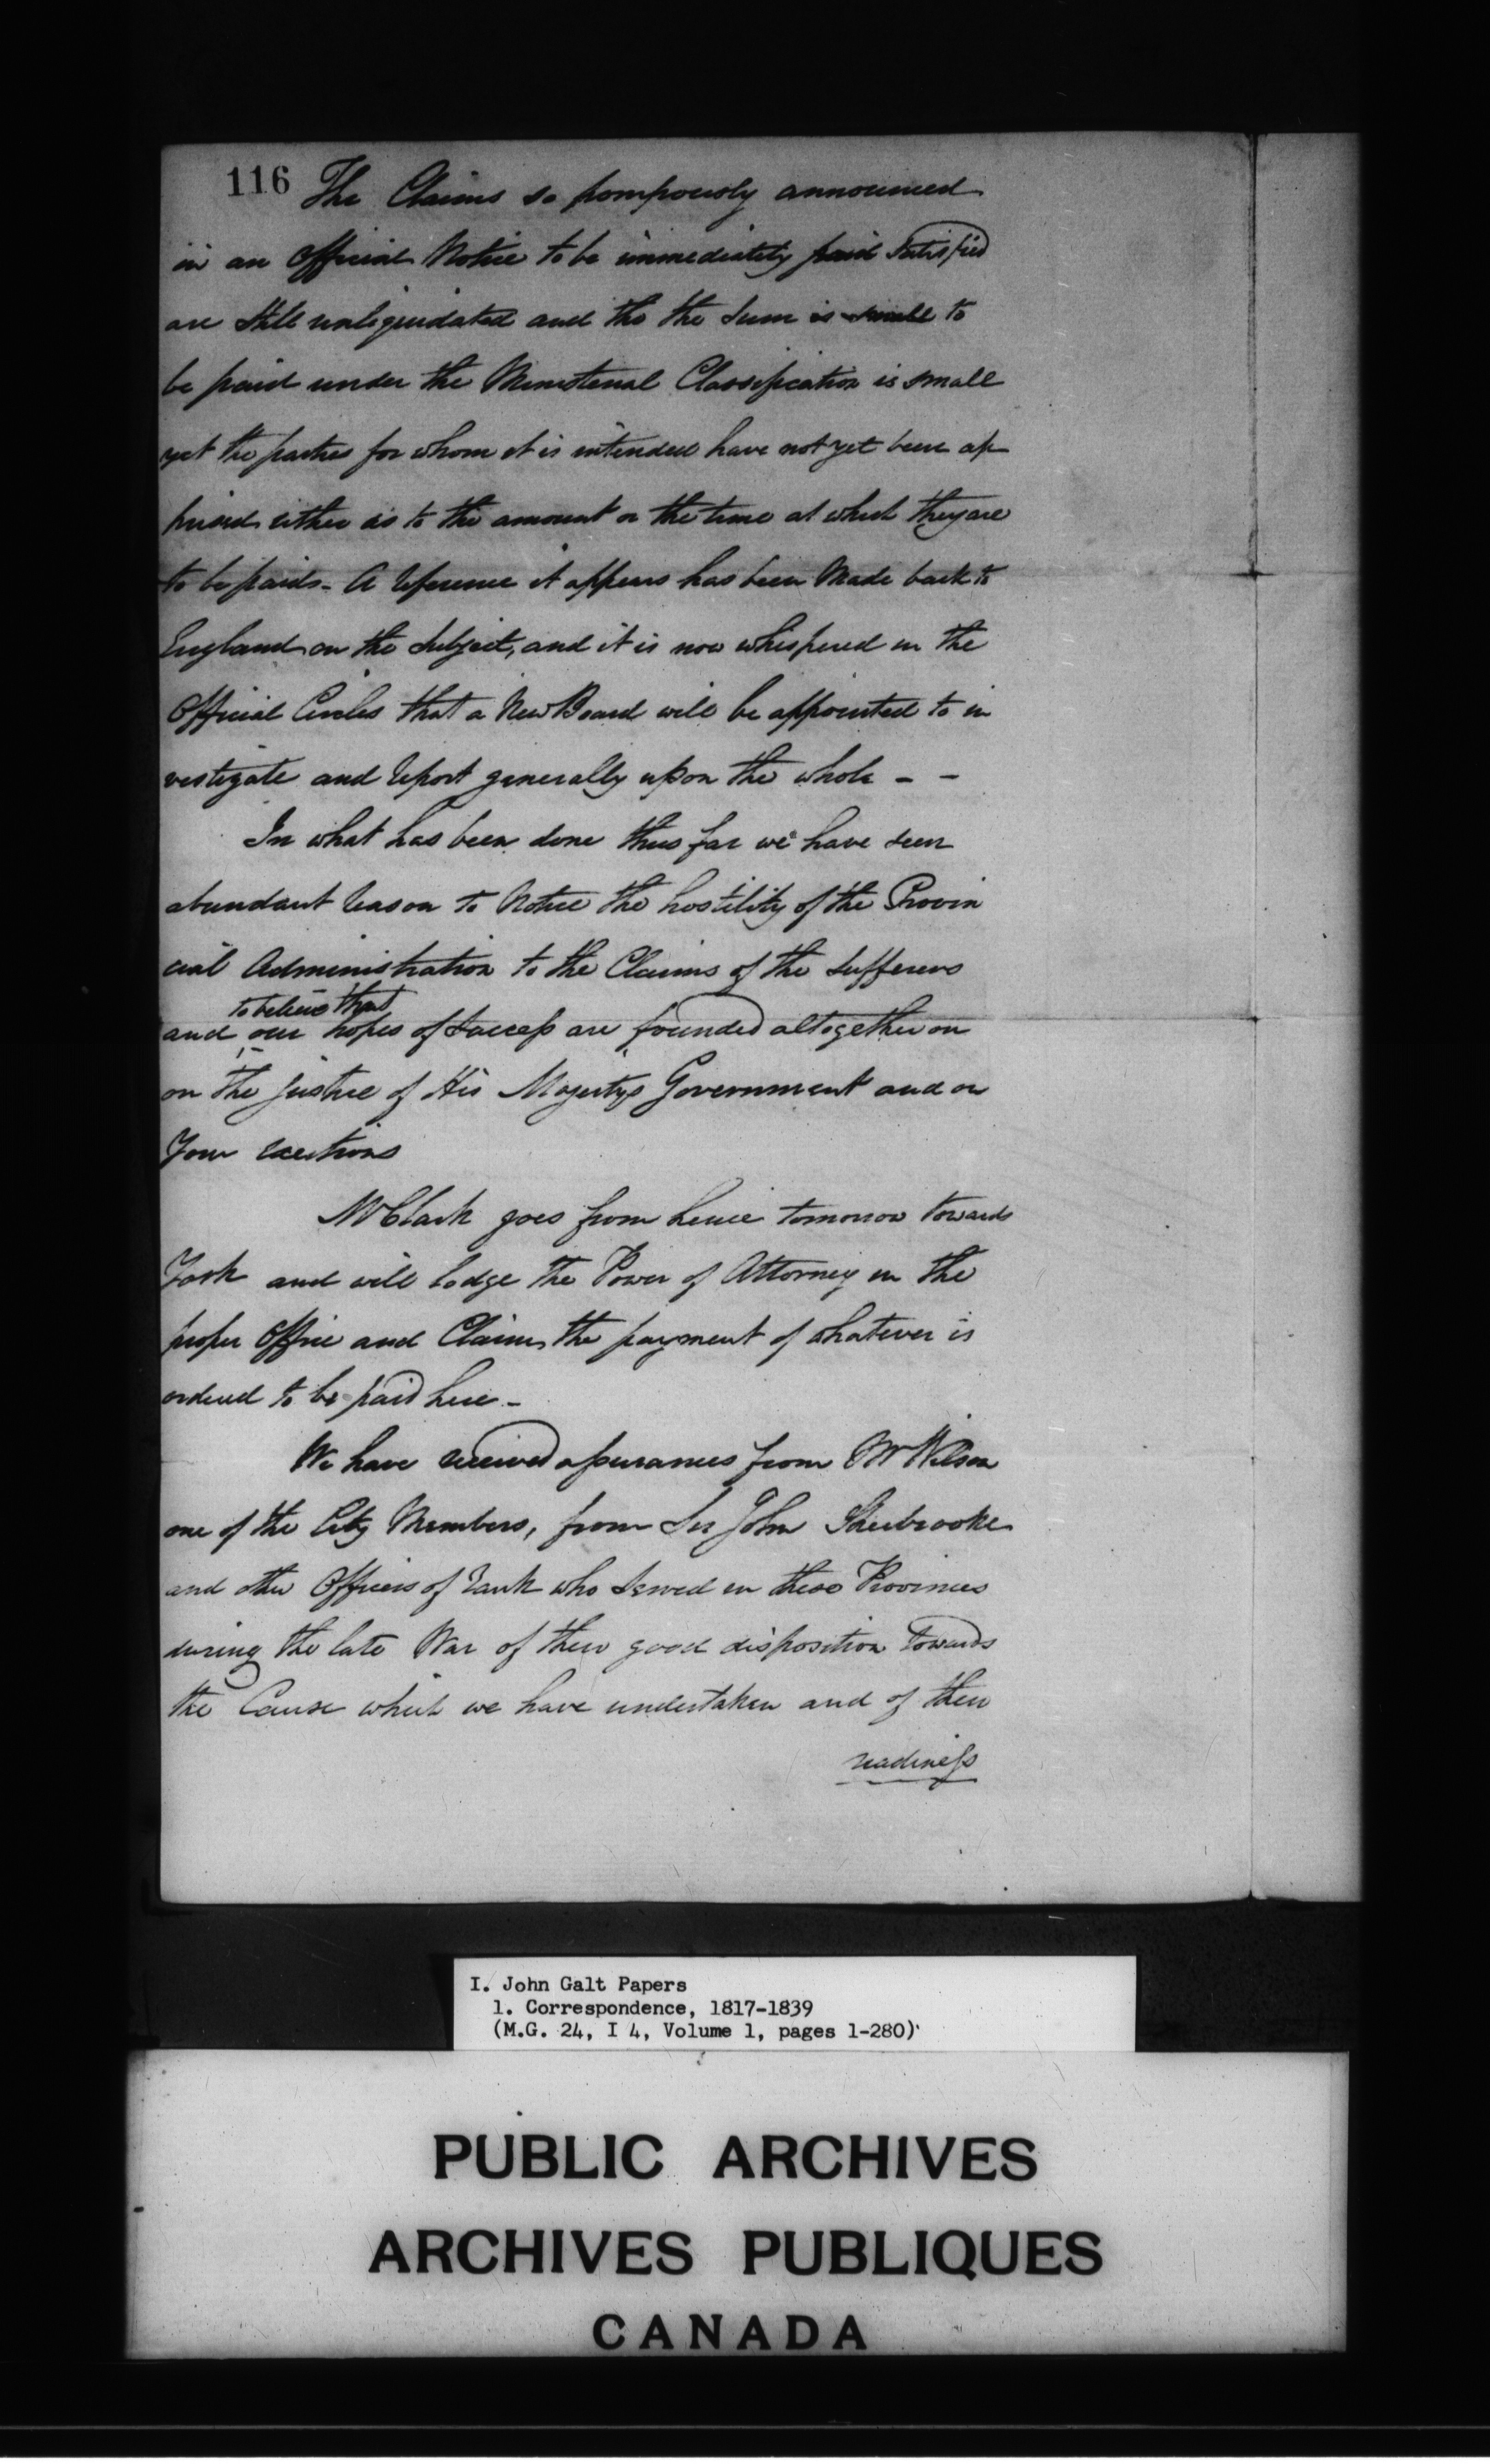 116 The Claims so pompously announced
in an Official Notice to be immediately paid Satisfied
are still unliquidated and tho the Sum is small to
be paid under the Ministerial Classification is small
yet the parties for whom it is intended have not yet been ap
prised either as to the amount or the time at which they are
to be paid. - A reference it appears has been Made back to
England on the Subject, and it is now whispered in the
Official Circles that a New Board will be appointed to in
vestigate and report generally upon the whole - -
In what has been done thus far we have seen
abundant reason to Notice the hostility of the Provin
cial Administration to the Claims of the Sufferers
to believe that
and our hopes of Success are founded altogether on
on the Justice of His Majestys Government and on
Your exertions
Mr Clark goes from hence tomorrow towards
York and will lodge the Power of Attorney in the
proper Office and Claim the payment of whatever is
ordered to be paid here -
We have received assurances from Mr Wilson
one of the City Members, from Sir John Sherbrooke
and other Officers of rank who Served in these Provinces
during the late War of their good disposition towards
the Cause which we have undertaken and of their
readiness
I. John Galt Papers
1. Correspondence, 1817-1839
(M.G. 24, I 4, Volume 1, pages 1-280)
PUBLIC ARCHIVES
ARCHIVES PUBLIQUES
CANADA